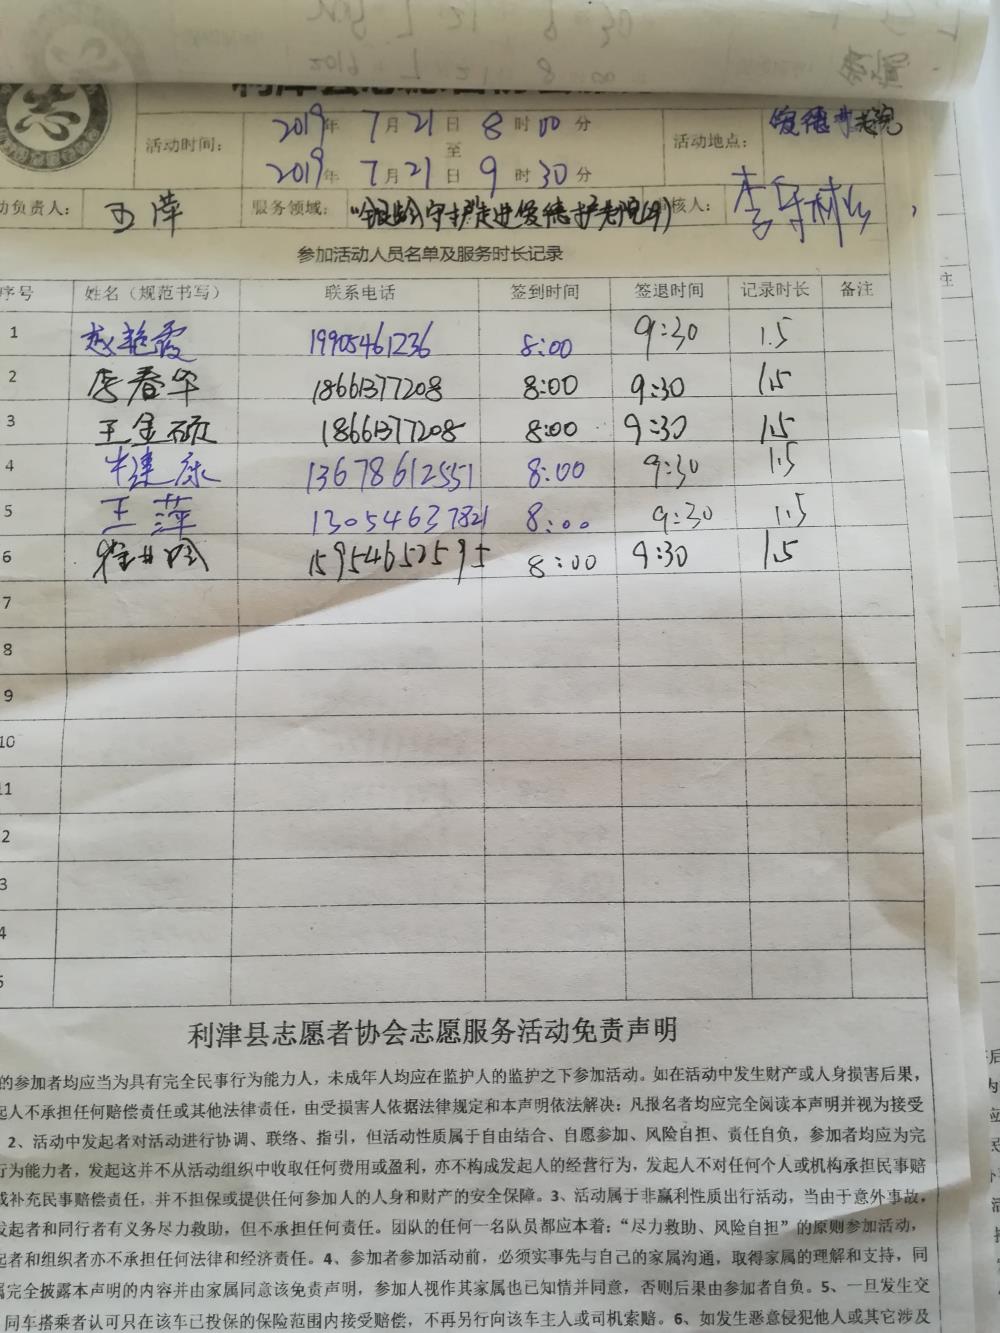 活动时间： 2019年 7月21日 8时00分
至
2019年 7月21日 9时30分
活动地点： 爱德护老院
动负责人： 王萍 服务领域： "银龄守护走进爱德护老院(4) 审核人： 李
参加活动人员名单及服务时长记录
序号 姓名（规范书写） 联系电话 签到时间 签退时间 记录时长 备注
1 赵艳霞 19905461236 8:00 9:30 1.5
2 李春华 18661377208 8:00 9:30 1.5
3 王金硕 18661377208 8:00 9:30 1.5
4 牛建康 13678612551 8:00 9:30 1.5
5 王萍 13054637821 8:00 9:30 1.5
6 15954652595 8:00 9:30 1.5
7
8
9
10
11
2
3
4
5
利津县志愿者协会志愿服务活动免责声明
的参加者均应当为具有完全民事行为能力人，未成年人均应在监护人的监护之下参加活动。如在活动中发生财产或人身损害后果，
起人不承担任何赔偿责任或其他法律责任，由受损害人依据法律规定和本声明依法解决；凡报名者均应完全阅读本声明并视为接受
2、活动中发起者对活动进行协调、联络、指引，但活动性质属于自由结合、自愿参加、风险自担、责任自负，参加者均应为完
行为能力者，发起这并不从活动组织中收取任何费用或盈利，亦不构成发起人的经营行为，发起人不对任何个人或机构承担民事赔
或补充民事赔偿责任，并不担保或提供任何参加人的人身和财产的安全保障。3、活动属于非赢利性质出行活动，当由于意外事故，
发起者和同行者有义务尽力救助，但不承担任何责任。团队的任何一名队员都应本着：“尽力救助、风险自担”的原则参加活动，
起者和组织者亦不承担任何法律和经济责任。4、参加者参加活动前，必须实事先与自己的家属沟通，取得家属的理解和支持，同
属完全披露本声明的内容并由家属同意该免责声明，参加人视作其家属也已知情并同意，否则后果由参加者自负。5、一旦发生交
同车搭乘者认可只在该车已投保的保险范围内接受赔偿，不再另行向该车主人或司机索赔。6、如发生恶意侵犯他人或其它涉及